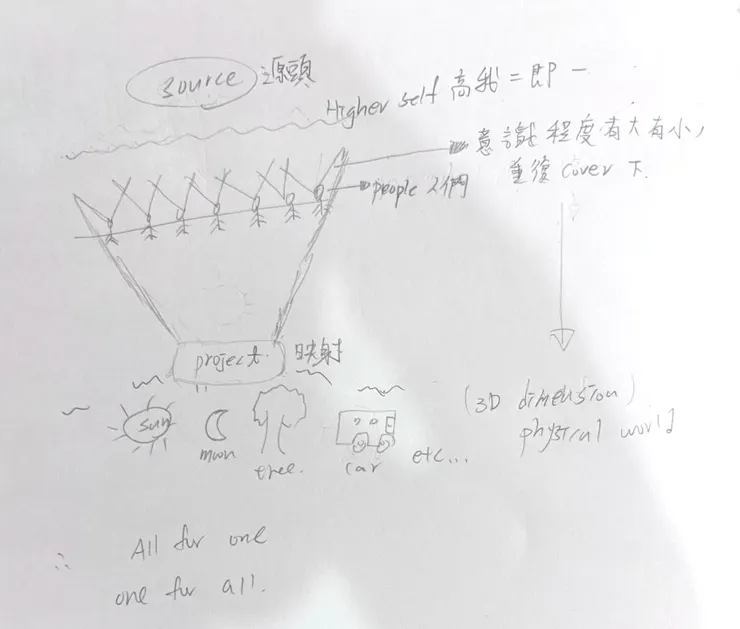 source 源頭
Higher self 高我 = 即一
意識程度有大有小,
重復 cover 下
people 人們
project. 映射
(3D dimension)
physical world
sun
moon
tree.
car
etc...
∴ All for one
one for all.